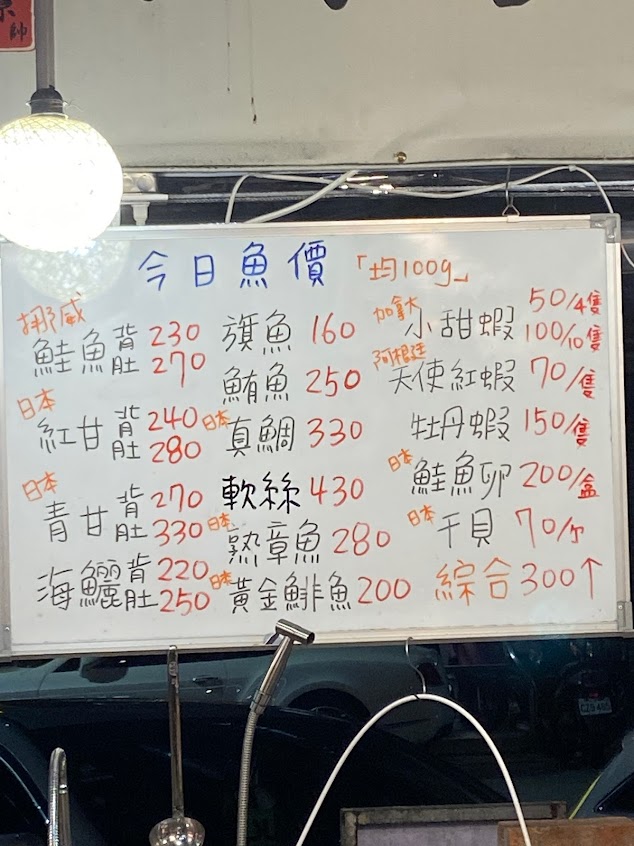 帥
今日魚價「均100g」
挪威
鮭魚背230
肚270
日本
紅甘背240
肚280
日本
青甘背270
肚330
海鱺背220
肚250
旗魚160
鮪魚250
日本
真鯛330
軟絲430
日本
熟章魚280
日本
黃金鯡魚200
加拿大
小甜蝦50/4隻
100/10隻
阿根廷
天使紅蝦70/隻
牡丹蝦150/隻
日本
鮭魚卵200/盒
日本
干貝70/
綜合300↑